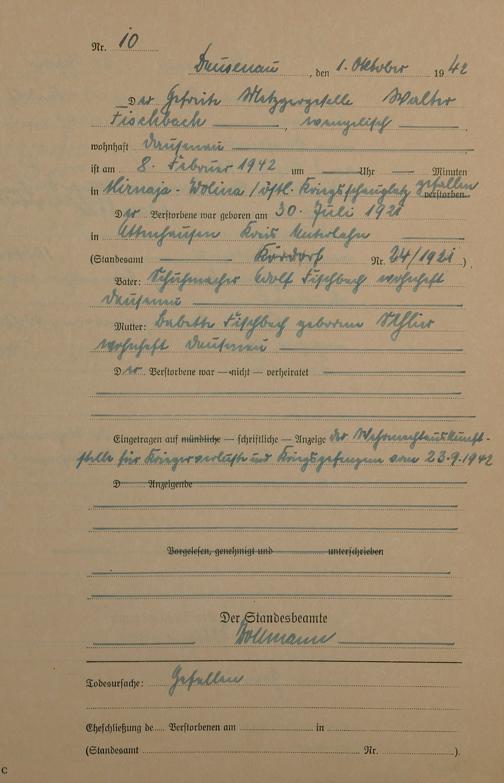 Nr. 10
Dausenau, den 1. Oktober 1942
Der Gefreite Metzgergeselle Walter
Fischbach, evangelisch
wohnhaft Dausenau
ist am 8. Februar 1942 um Uhr Minuten
in Mirnaja-Wolina / östl. Kriegsschauplatz gefallen verstorben.
Der Verstorbene war geboren am 30. Juli 1921
in Attenhausen Kreis Unterlahn
(Standesamt Kördorf Nr. 24/1921)
Vater: Schuhmacher Adolf Fischbach wohnhaft
Dausenau
Mutter: Babette Fischbach geborene
wohnhaft Dausenau
Der Verstorbene war — nicht — verheiratet
Eingetragen auf mündliche — schriftliche — Anzeige der Wehrmachtauskunft-
stelle für Kriegerverluste und Kriegsgefangene vom 23.9.1942
D Anzeigende
Vorgelesen, genehmigt und unterschrieben
Der Standesbeamte
Bollmann
Todesursache: Gefallen
Eheschließung de Verstorbenen am in
(Standesamt Nr. ).
C